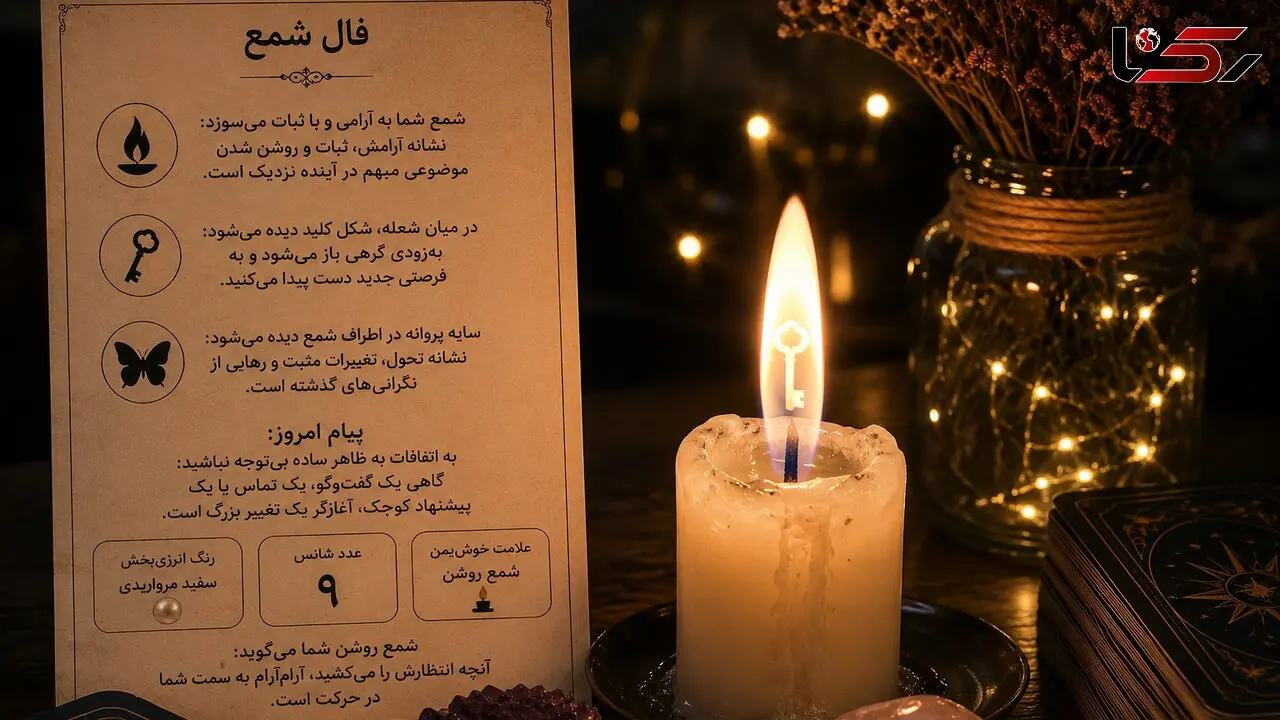 فال شمع
شمع شما به آرامی و با ثبات می‌سوزد:
نشانه آرامش، ثبات و روشن شدن
موضوعی مبهم در آینده نزدیک است.
در میان شعله، شکل کلید دیده می‌شود:
به‌زودی گرهی باز می‌شود و به
فرصتی جدید دست پیدا می‌کنید.
سایه پروانه در اطراف شمع دیده می‌شود:
نشانه تحول، تغییرات مثبت و رهایی از
نگرانی‌های گذشته است.
پیام امروز:
به اتفاقات به ظاهر ساده بی‌توجه نباشید:
گاهی یک گفت‌وگو، یک تماس یا یک
پیشنهاد کوچک، آغازگر یک تغییر بزرگ است.
علامت خوش‌یمن
شمع روشن
عدد شانس
۹
رنگ انرژی‌بخش
سفید مرواریدی
شمع روشن شما می‌گوید:
آنچه انتظارش را می‌کشید، آرام‌آرام به سمت شما
در حرکت است.
رکنا